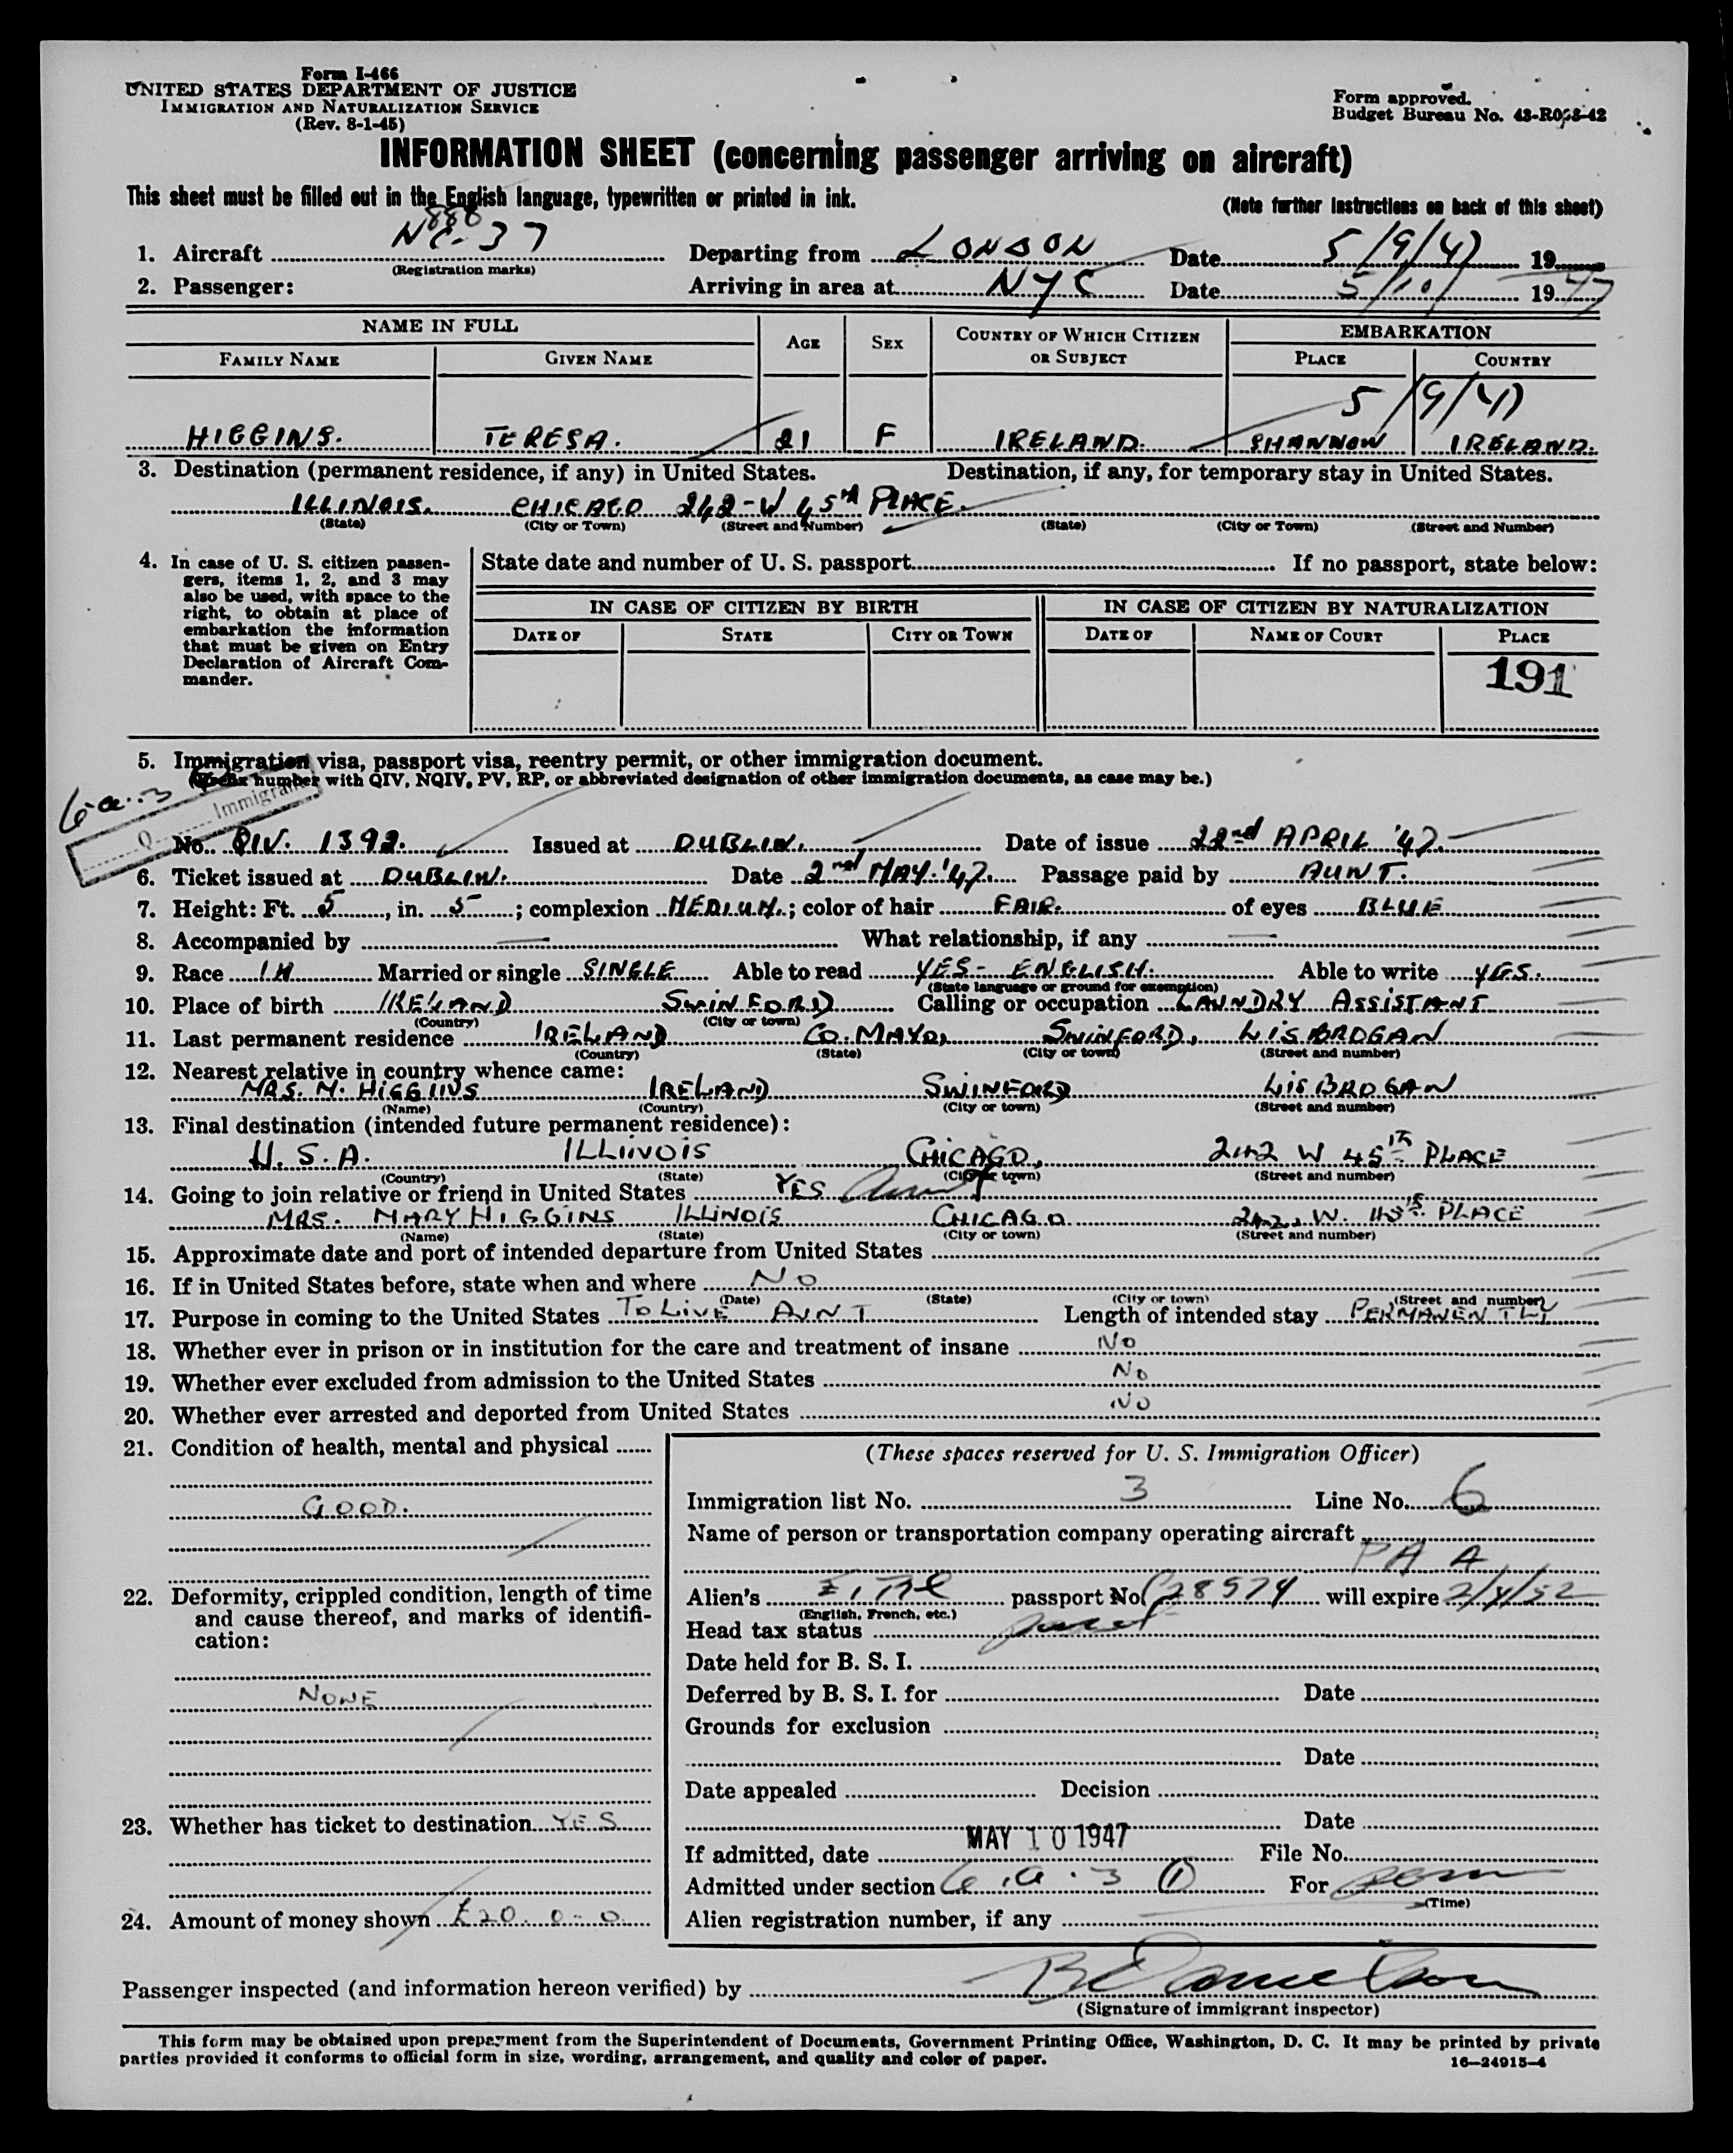 Form I-466
UNITED STATES DEPARTMENT OF JUSTICE
IMMIGRATION AND NATURALIZATION SERVICE
(Rev. 8-1-45)
Form approved.
Budget Bureau No. 43-R068-42
INFORMATION SHEET (concerning passenger arriving on aircraft)
This sheet must be filled out in the English language, typewritten or printed in ink.
(Note further instructions on back of this sheet)
888
1. Aircraft NC-37 Departing from LONDON Date 5/9/47 19
(Registration marks)
2. Passenger: Arriving in area at NYC Date 5/10/ 1947
NAME IN FULL AGE SEX COUNTRY OF WHICH CITIZEN OR SUBJECT EMBARKATION
FAMILY NAME GIVEN NAME PLACE COUNTRY
5/9/47
HIGGINS. TERESA. 21 F IRELAND. SHANNON IRELAND.
3. Destination (permanent residence, if any) in United States. Destination, if any, for temporary stay in United States.
ILLINOIS. CHICAGO 242-W 45th PLACE.
(State) (City or Town) (Street and Number) (State) (City or Town) (Street and Number)
4. In case of U. S. citizen passengers, items 1, 2, and 3 may also be used, with space to the right, to obtain at place of embarkation the information that must be given on Entry Declaration of Aircraft Commander.
State date and number of U. S. passport If no passport, state below:
IN CASE OF CITIZEN BY BIRTH IN CASE OF CITIZEN BY NATURALIZATION
DATE OF STATE CITY OR TOWN DATE OF NAME OF COURT PLACE
191
5. Immigration visa, passport visa, reentry permit, or other immigration document.
(Prefix number with QIV, NQIV, PV, RP, or abbreviated designation of other immigration documents, as case may be.)
6-a-3
Q Immigrant
No. QIV. 1392. Issued at DUBLIN. Date of issue 22nd APRIL '47.
6. Ticket issued at DUBLIN. Date 2nd MAY. '47. Passage paid by AUNT.
7. Height: Ft. 5, in. 5; complexion MEDIUM.; color of hair FAIR. of eyes BLUE
8. Accompanied by — What relationship, if any —
9. Race IH Married or single SINGLE Able to read YES - ENGLISH. Able to write YES.
(State language or ground for exemption)
10. Place of birth IRELAND SWINFORD Calling or occupation LAUNDRY ASSISTANT
(Country) (City or town)
11. Last permanent residence IRELAND CO. MAYO, SWINFORD, LISBROGAN
(Country) (State) (City or town) (Street and number)
12. Nearest relative in country whence came:
MRS. M. HIGGINS IRELAND SWINFORD LISBROGAN
(Name) (Country) (City or town) (Street and number)
13. Final destination (intended future permanent residence):
U.S.A. ILLINOIS CHICAGO, 242 W 45th PLACE
(Country) (State) (City or town) (Street and number)
14. Going to join relative or friend in United States YES Aunt
MRS. MARY HIGGINS ILLINOIS CHICAGO 242, W. 45th PLACE
(Name) (State) (City or town) (Street and number)
15. Approximate date and port of intended departure from United States
16. If in United States before, state when and where NO
(Date) (State) (City or town) (Street and number)
17. Purpose in coming to the United States TO LIVE AUNT Length of intended stay PERMANENTLY
18. Whether ever in prison or in institution for the care and treatment of insane NO
19. Whether ever excluded from admission to the United States NO
20. Whether ever arrested and deported from United States NO
21. Condition of health, mental and physical
GOOD.
22. Deformity, crippled condition, length of time and cause thereof, and marks of identification:
NONE
23. Whether has ticket to destination YES
24. Amount of money shown £20 0-0
(These spaces reserved for U. S. Immigration Officer)
Immigration list No. 3 Line No. 6
Name of person or transportation company operating aircraft
PAA
Alien's passport No. 28574 will expire 2/4/52
(English, French, etc.)
Head tax status
Date held for B. S. I.
Deferred by B. S. I. for Date
Grounds for exclusion
Date
Date appealed Decision
Date
If admitted, date MAY 10 1947 File No.
Admitted under section 6.a.3 (1) For perm
(Time)
Alien registration number, if any
Passenger inspected (and information hereon verified) by
(Signature of immigrant inspector)
This form may be obtained upon prepayment from the Superintendent of Documents, Government Printing Office, Washington, D. C. It may be printed by private
parties provided it conforms to official form in size, wording, arrangement, and quality and color of paper. 16—24915-4